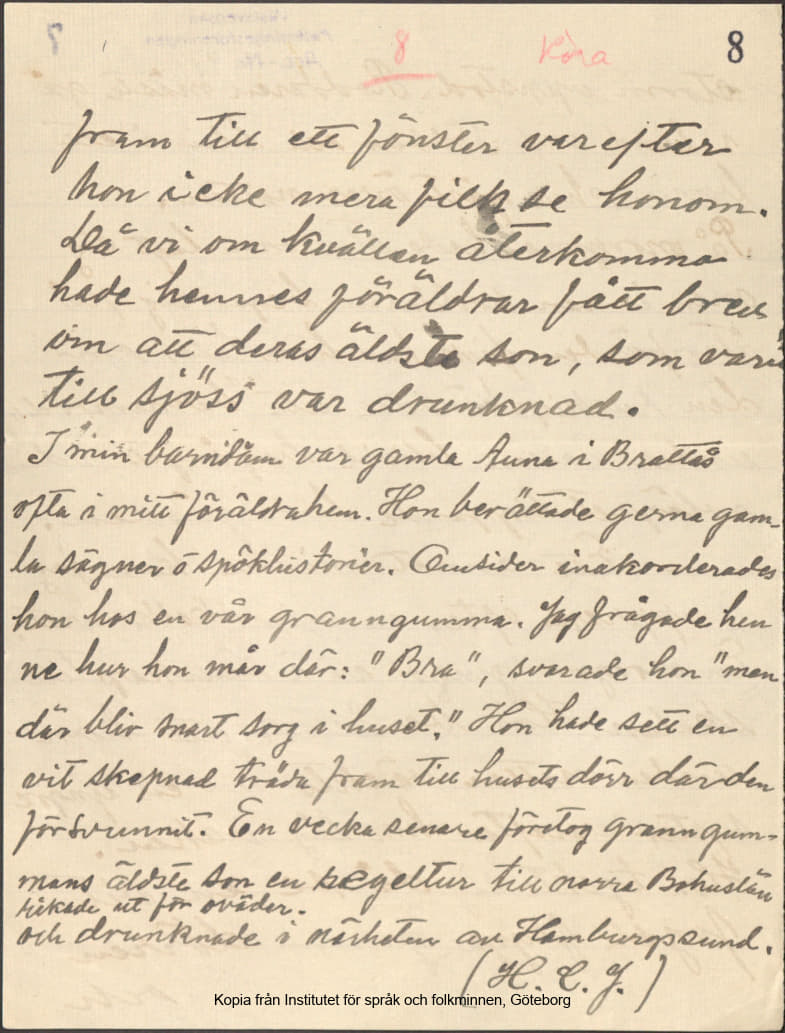 8
8 Köra
fram till ett fönster varefter
hon icke mera fick se honom.
Då vi om kvällen återkommo
hade hennes föräldrar fått brev
om att deras äldste son, som varit
till sjöss var drunknad.
I min barndom var gamla Anna i Brattås
ofta i mitt föräldrahem. Hon berättade gerna gam-
la sägner o spökhistorier. Omsider inakorderades
hon hos en vår granngumma. Jag frågade hen
ne hur hon mår där: "Bra", svarade hon "men
där bliv snart sorg i huset." Hon hade sett en
vit skepnad träda fram till husets dörr där den
försvunnit. En vecka senare företog granngum-
mans äldste son en segeltur till norra Bohuslän
rickade ut för oväder.
och drunknade i närheten av Hamburgsund.
(H. C. J.)
Kopia från Institutet för språk och folkminnen, Göteborg